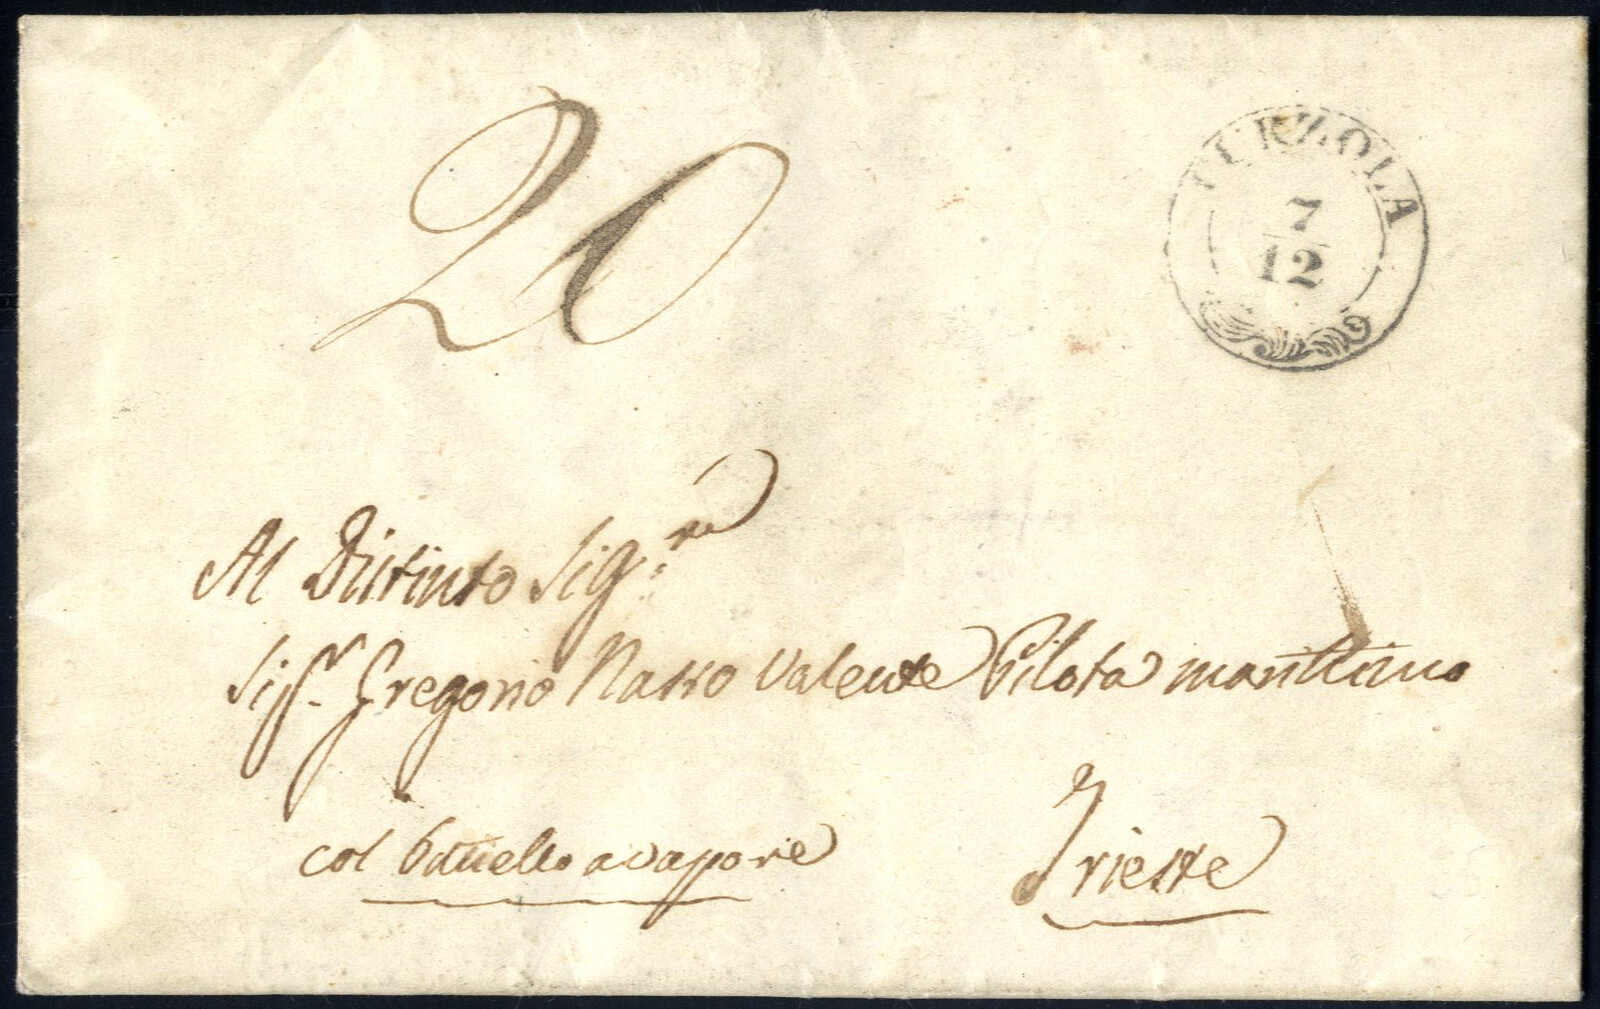 20
CURZOLA
7
12
Al Distinto Sig:re
Sigr. Gregorio Nasso Valente Pilota marittimo
col battello a vapore
Trieste